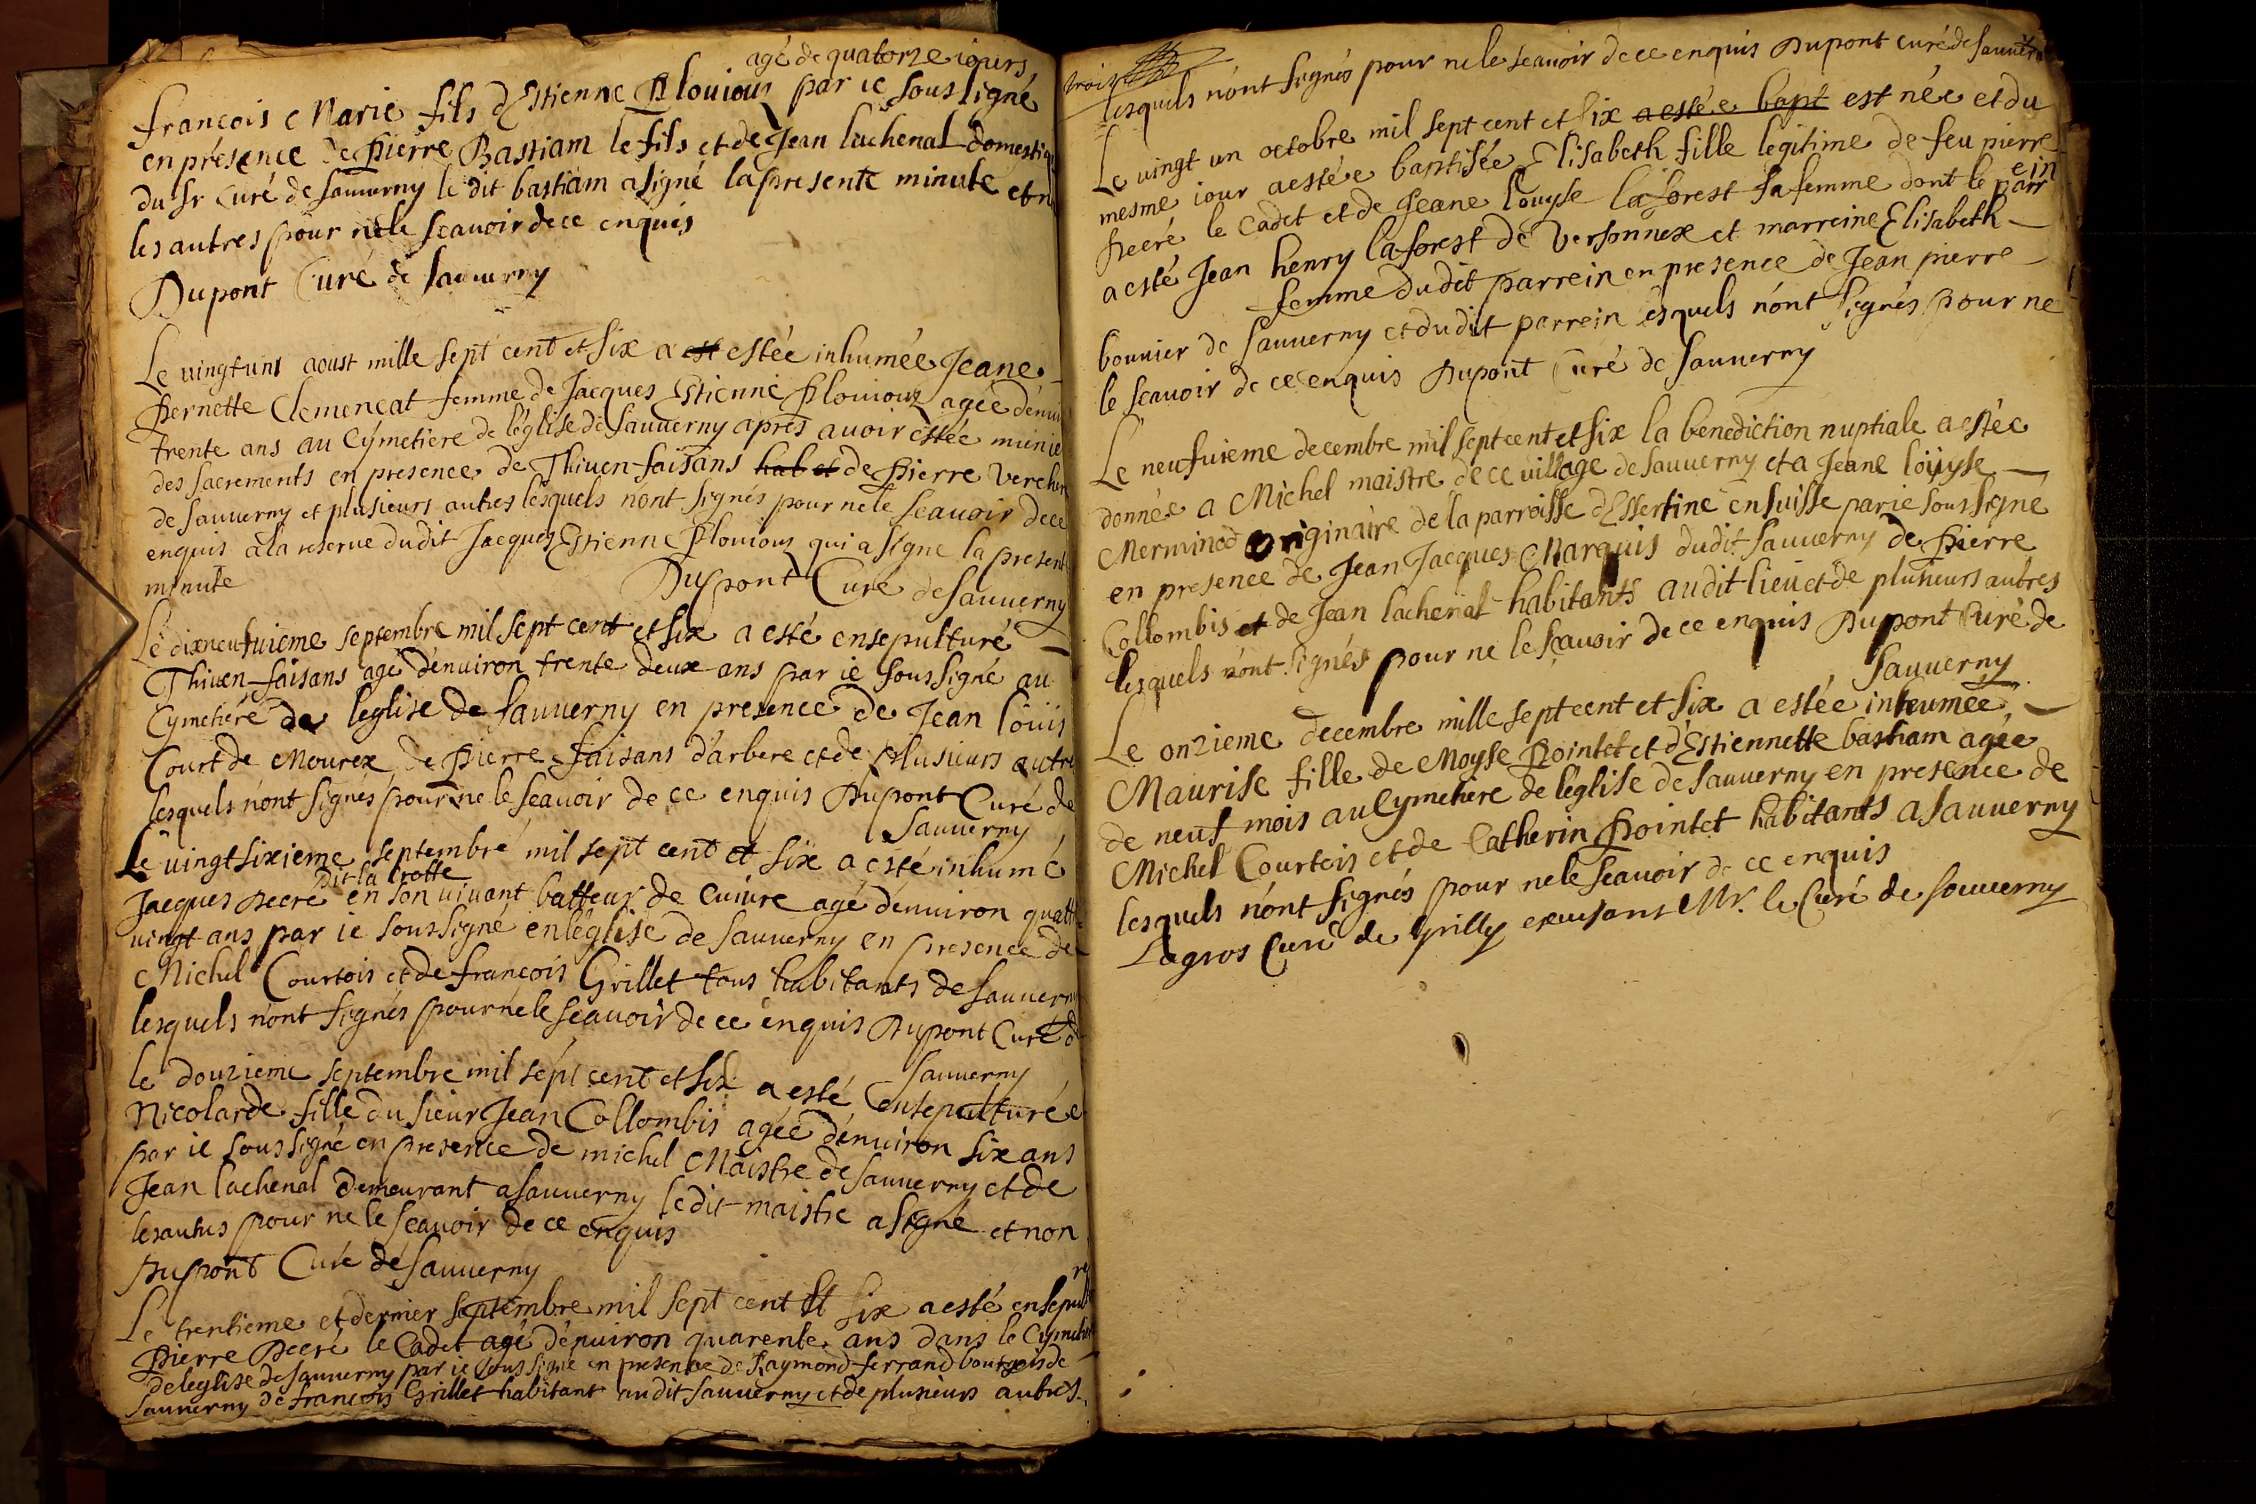 agé de quatorze iours
françois Marie fils d'Estienne Plouiouz par ie sousligné
en présence de Pierre Bastiam le fils et de Jean lachenal domestiq
du Sr Curé de sauuerny le dit bastiam a signé la presente minute et n
les autres pour ne le sçauoir de ce enquis
Dupont Curé de sauuerny
Le uingt uns aoust mille sept cent et six a est estée inhumée Jeane
Pernette Clemencat femme de Jacques Estienne Plouiouz agée d'énui
trente ans au Cymetiere de l'église de Sauuerny apres auoir estée munie
des sacrements en presence de Thiuen faisans hab et de Pierre Vercher
de sauuerny et plusieurs autres lesquels n'ont signés pour ne le sçauoir de ce
enquis a la reserue dudit Jacques Estienne Plouiouz qui a signe la present
minute
Dupont Curé de sauuerny
Le dixneufuieme septembre mil sept cent et six a esté ensepulturé
Thiuen faisans agé d'énuiron trente deux ans par ie sous signé au
Cymetiére de leglise de sauuerny en presence de Jean loüis
Court de Mourex de Pierre faisans d'arbere et de plusieurs autre
lesquels n'ont signés pour ne le sçauoir de ce enquis Dupont Curé de
Sauuerny
Le uingt sixieme septembre mil sept cent et six a esté inhumé
dit la Crotte
Jacques Decré en son uiuant batteur de Cuiure agé d'énuiron quatt
uingt ans par ie sous signé en l'église de sauuerny en presence de
Michel Courtois et de françois Grillet tous habitants de sauuern
lesquels n'ont signés pour ne le sçauoir de ce enquis Dupont Curé d
Sauuerny
le douzieme septembre mil sept cent et six a esté ensepulturée
Nicolarde fille du sieur Jean Collombis agée d'énuiron six ans
par ie sous signé en presence de michel Maistre de sauuerny et de
Jean lachenal demeurant a sauuerny le dit maistre a signe et non
les autres pour ne le sçauoir de ce enquis
Dupont Curé de sauuerny
re
Le trentieme et dernier septembre mil sept cent et six a esté ensepult
Pierre Decré le Cadet agé d'énuiron quarente ans dans le Cymeti
de leglise de sauuerny par ie sous signé en presence de Raymond ferrand bourgeois de
sauuerny de françois Grillet habitant au dit sauuerny et de plusieurs autres
trois
lesquels n'ont signés pour ne le sçauoir de ce enquis Dupont curé de sauuer
Le uingt un octobre mil sept cent et six a estée bapt est née et du
mesme iour a estée baptisée Elisabeth fille legitime de feu pierre
Decré le Cadet et de Jeane louyse laforest sa femme dont le parr
ein
a esté Jean henry laforest de Versonnex et marreine Elisabeth
femme dudit parrein en presence de Jean pierre
bouuier de sauuerny et dudit parrein esquels n'ont signés pour ne
le sçauoir de ce enquis Dupont Curé de Sauuerny
Le neufuieme decembre mil sept cent et six la benediction nuptiale a estée
donnée a Michel maistre de ce village de sauuerny et a Jeane loüyse
Merminod originaire de la parroisse d'Essertine en suisse par ie sous signé
en presence de Jean Jacques Marquis dudit sauuerny de Pierre
Collombis et de Jean lachenal habitants au dit lieu et de plusieurs autres
lesquels n'ont signés pour ne le sçauoir de ce enquis Dupont Curé de
Sauuerny
Le onzieme decembre mille sept cent et six a estée inheumée
Maurise fille de Moyse Pointet et d'Estiennette bastiam agée
de neuf mois au Cymetiere de l'église de sauuerny en presence de
Michel Courtois et de Catherin Pointet habitants a sauuerny
lesquels n'ont signés pour ne le sçauoir de ce enquis
Lagros Curé de Grilly excusant Mr. le Curé de sauuerny